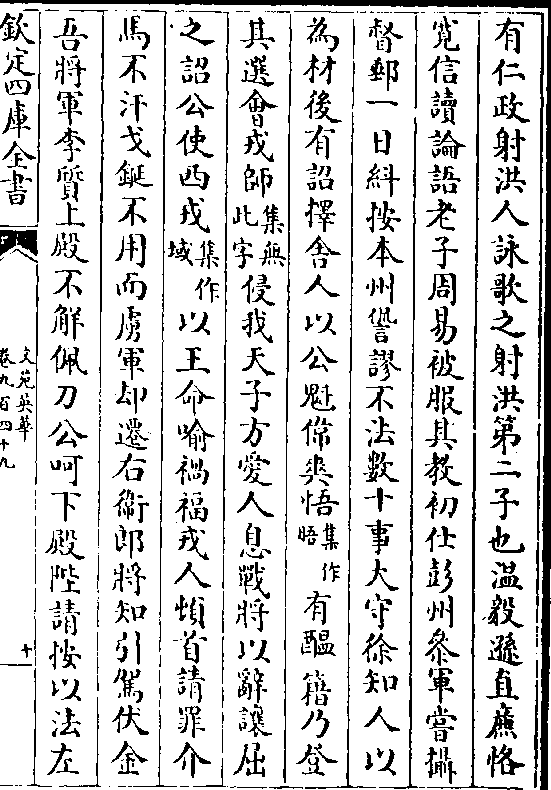 有仁政射洪人詠歌之射洪第二子也溫毅遜直廉恪
寛信讀論語老子周易被服其教初仕彭州叅軍嘗攝
督郵一日糾按本州愆謬不法數十事大守徐知人以
為材後有詔擇舍人以公魁傑爽悟集作晤有醞籍乃登
其選㑹戎師集無此字侵我天子方愛人息戰將以辭讓屈
之詔公使西戎集作域以王命喻禍福戎人頓首請罪介
馬不汗戈鋋不用而虜軍却遷右衛郎將知引駕伏金
吾將軍李質上殿不解佩刀公呵下殿陛請按以法左
欽定四庫全書
文苑英華
卷九百四十九
十